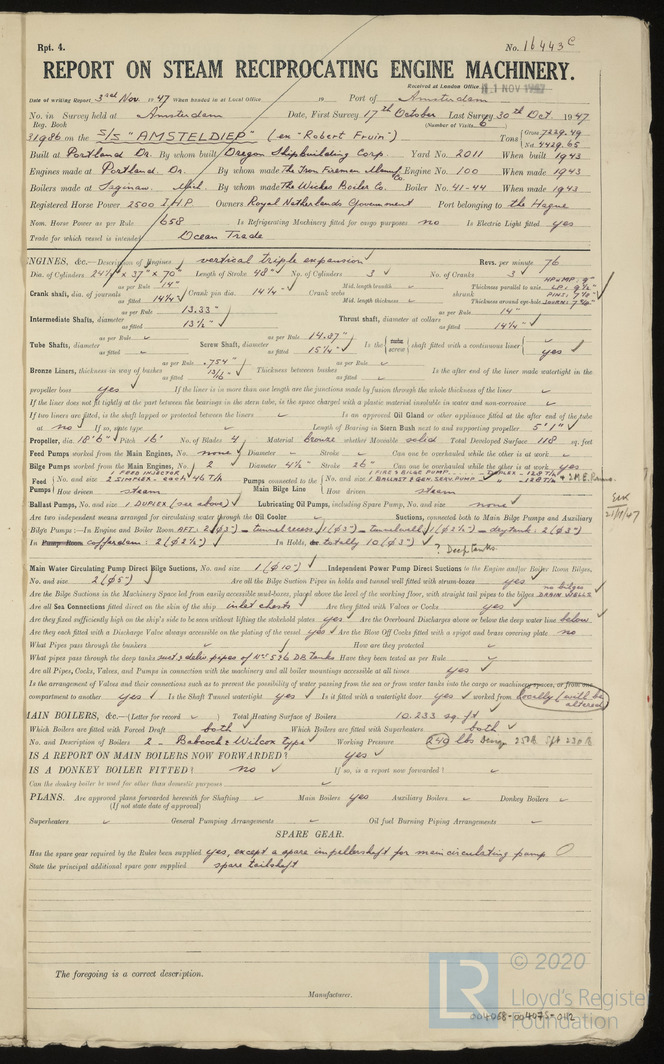 Rpt. 4.
No. 16443c
REPORT ON STEAM RECIPROCATING ENGINE MACHINERY.
Received at London Office 11 NOV 1947
Date of writing Report 3rd Nov. 1947 When handed in at Local Office 19 Port of Amsterdam
No. in Survey held at Amsterdam Date, First Survey 17th October Last Survey 30th Oct. 1947
Reg. Book (Number of Visits 6
31986 on the S/S "AMSTELDIEP" (ex-Robert Fruin-) Tons Gross 7229.49 Net 4429.65
Built at Portland Or. By whom built Oregon Shipbuilding Corp. Yard No. 2011 When built 1943
Engines made at Portland. Or. By whom made The Iron Fireman Manuf Co. Engine No. 100 When made 1943
Boilers made at Saginaw. Mich. By whom made The Wickes Boiler Co. Boiler No. 41-44 When made 1943
Registered Horse Power 2500 I.H.P. Owners Royal Netherlands Government Port belonging to the Hague
Nom. Horse Power as per Rule 658 Is Refrigerating Machinery fitted for cargo purposes no Is Electric Light fitted yes
Trade for which vessel is intended Ocean Trade
ENGINES, &c.—Description of Engines vertical triple expansion Revs. per minute 76
Dia. of Cylinders 24½" x 37" x 70" Length of Stroke 48" No. of Cylinders 3 No. of Cranks 3
Crank shaft, dia. of journals as per Rule 14" as fitted 14¼" Crank pin dia. 14¼" Crank webs Mid. length breadth Mid. length thickness shrunk Thickness parallel to axis Thickness around eye-hole
Intermediate Shafts, diameter as per Rule 13.33" as fitted 13½" Thrust shaft, diameter at collars as per Rule 14" as fitted 14¼"
Tube Shafts, diameter as per Rule as fitted Screw Shaft, diameter as per Rule 14.27" as fitted 15¼" Is the tube screw shaft fitted with a continuous liner yes
Bronze Liners, thickness in way of bushes as per Rule .754" as fitted 13/16" Thickness between bushes as per Rule as fitted Is the after end of the liner made watertight in the
propeller boss yes If the liner is in more than one length are the junctions made by fusion through the whole thickness of the liner
If the liner does not fit tightly at the part between the bearings in the stern tube, is the space charged with a plastic material insoluble in water and non-corrosive
If two liners are fitted, is the shaft lapped or protected between the liners Is an approved Oil Gland or other appliance fitted at the after end of the tube
at no If so, state type Length of Bearing in Stern Bush next to and supporting propeller 5'1"
Propeller, dia 18'6" Pitch 16' No. of Blades 4 Material bronze whether Moveable solid Total Developed Surface 118 sq. feet
Feed Pumps worked from the Main Engines, No. none Diameter Stroke Can one be overhauled while the other is at work
Bilge Pumps worked from the Main Engines, No. 2 Diameter 4½" Stroke 26" Can one be overhauled while the other is at work yes
Feed Pumps No. and size 1 FEED INJECTOR 2 SIMPLEX - each 46 T/h Pumps connected to the Main Bilge Line No. and size 1 FIRE & BILGE PUMP 1 BALLAST & GEN. SERV. PUMP & 2 M.E. Pumps.
How driven steam How driven steam
Ballast Pumps, No. and size 1 DUPLEX (see above) Lubricating Oil Pumps, including Spare Pump, No. and size none
Are two independent means arranged for circulating water through the Oil Cooler Suctions, connected both to Main Bilge Pumps and Auxiliary
Bilge Pumps:—In Engine and Boiler Room AFT: 2(ø3")- tunnel recess 1(ø3")- tunnelwell 1(ø2½")- drytank: 2(ø3")
In Pump Room cofferdam: 2(ø2½") In Holds, &c totally 10(ø3")
? Deep tanks.
21/11/47
Main Water Circulating Pump Direct Bilge Suctions, No. and size 1(ø10") Independent Power Pump Direct Suctions to the Engine and/or Boiler Room Bilges,
No. and size 2(ø5") Are all the Bilge Suction Pipes in holds and tunnel well fitted with strum-boxes yes
Are the Bilge Suctions in the Machinery Space led from easily accessible mud-boxes, placed above the level of the working floor, with straight tail pipes to the bilges no bilges DRAIN WELLS
Are all Sea Connections fitted direct on the skin of the ship inlet chests Are they fitted with Valves or Cocks yes
Are they fixed sufficiently high on the ship's side to be seen without lifting the stokehold plates yes Are the Overboard Discharges above or below the deep water line below
Are they each fitted with a Discharge Valve always accessible on the plating of the vessel yes Are the Blow Off Cocks fitted with a spigot and brass covering plate no
What Pipes pass through the bunkers How are they protected
What pipes pass through the deep tanks suct. & deliv. pipes of No. 5 & 6 DB tanks Have they been tested as per Rule
Are all Pipes, Cocks, Valves, and Pumps in connection with the machinery and all boiler mountings accessible at all times yes
Is the arrangement of Valves and their connections such as to prevent the possibility of water passing from the sea or from water tanks into the cargo or machinery spaces, or from one
compartment to another yes Is the Shaft Tunnel watertight yes Is it fitted with a watertight door yes worked from locally (will be altered)
MAIN BOILERS, &c.—(Letter for record ) Total Heating Surface of Boilers 10.233 sq. ft.
Which Boilers are fitted with Forced Draft both Which Boilers are fitted with Superheaters both
No. and Description of Boilers 2 - Babcock & Wilcox type Working Pressure 240 lbs
IS A REPORT ON MAIN BOILERS NOW FORWARDED? yes
IS A DONKEY BOILER FITTED? no If so, is a report now forwarded?
Can the donkey boiler be used for other than domestic purposes
PLANS. Are approved plans forwarded herewith for Shafting Main Boilers yes Auxiliary Boilers Donkey Boilers
(If not state date of approval)
Superheaters General Pumping Arrangements Oil fuel Burning Piping Arrangements
SPARE GEAR.
Has the spare gear required by the Rules been supplied yes, except a spare impellershaft for main circulating pump
State the principal additional spare gear supplied spare tailshaft
The foregoing is a correct description.
Manufacturer.
LR © 2020
Lloyd's Register
Foundation
004068-004075-0112